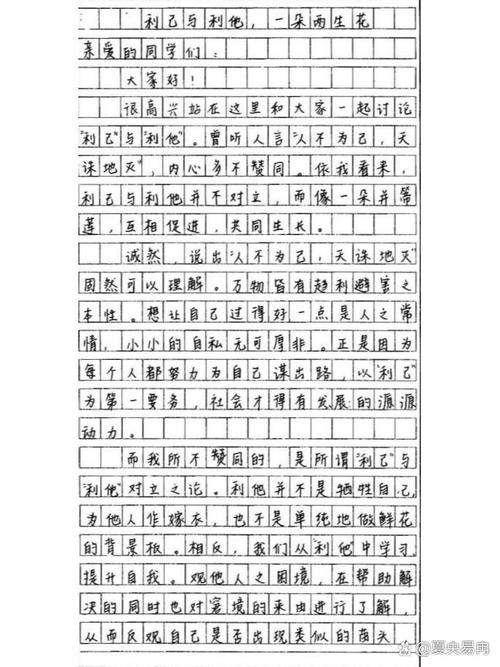 利己与利他，一朵两生花
亲爱的同学们：
大家好！
很高兴站在这里和大家一起讨论
“利己”与“利他”。曾听人言“人不为己，天
诛地灭”，内心多不赞同。依我看来，
利己与利他并不对立，而像一朵并蒂
莲，互相促进，共同生长。
诚然，说出“人不为己，天诛地灭”
固然可以理解。万物皆有趋利避害之
本性。想让自己过得好一点是人之常
情，小小的自私无可厚非。正是因为
每个人都努力为自己谋出路，以“利己”
为第一要务，社会才得有发展的源源
动力。
而我所不赞同的，是所谓“利己”与
“利他”对立之论。利他并不是牺牲自己，
为他人作嫁衣，也不是单纯地做鲜花
的背景板。相反，我们从“利他”中学习，
提升自我。观他人之困境，在帮助解
决的同时也对窘境的来由进行了解，
从而反观自己是否出现类似的苗头。
@夏央易冉